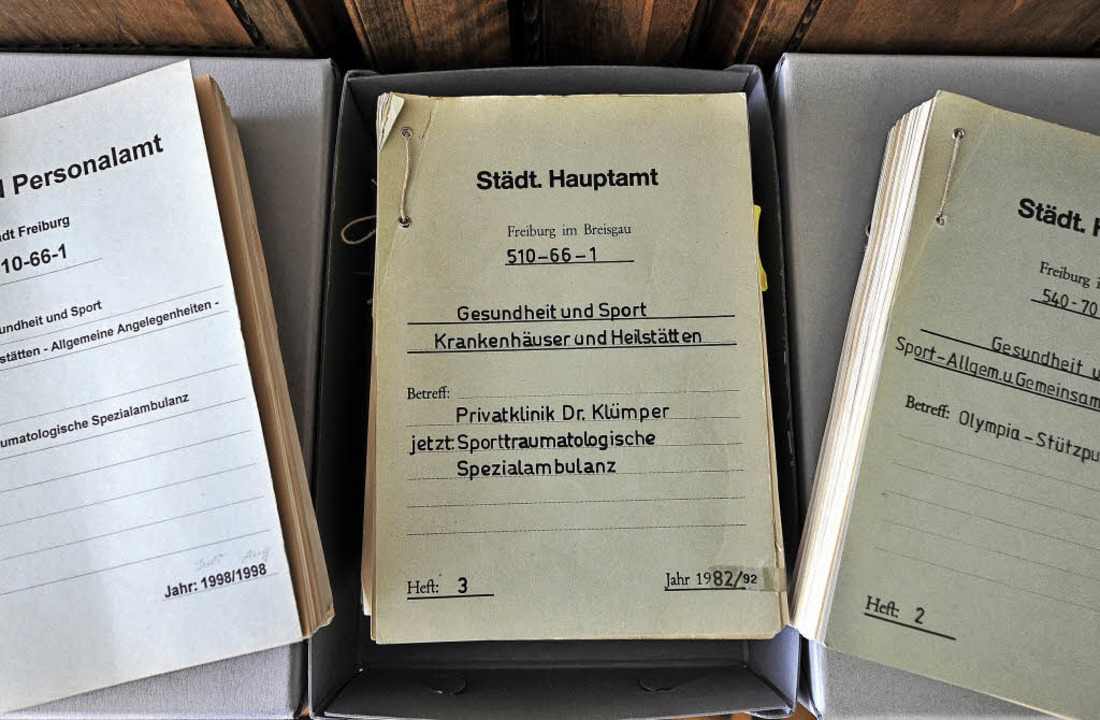 Personalamt
Freiburg
10-66-1
und Sport
- Allgemeine Angelegenheiten -
Spezialambulanz
Jahr: 1998/1998
Städt. Hauptamt
Freiburg im Breisgau
510-66-1
Gesundheit und Sport
Krankenhäuser und Heilstätten
Betreff:
Privatklinik Dr. Klümper
jetzt: Sporttraumatologische
Spezialambulanz
Heft: 3
Jahr 1982/92
Städt.
Freiburg
540-70
Gesundheit
Sport-Allgem.u.Gemeinsam
Betreff: Olympia-Stützpu
Heft: 2